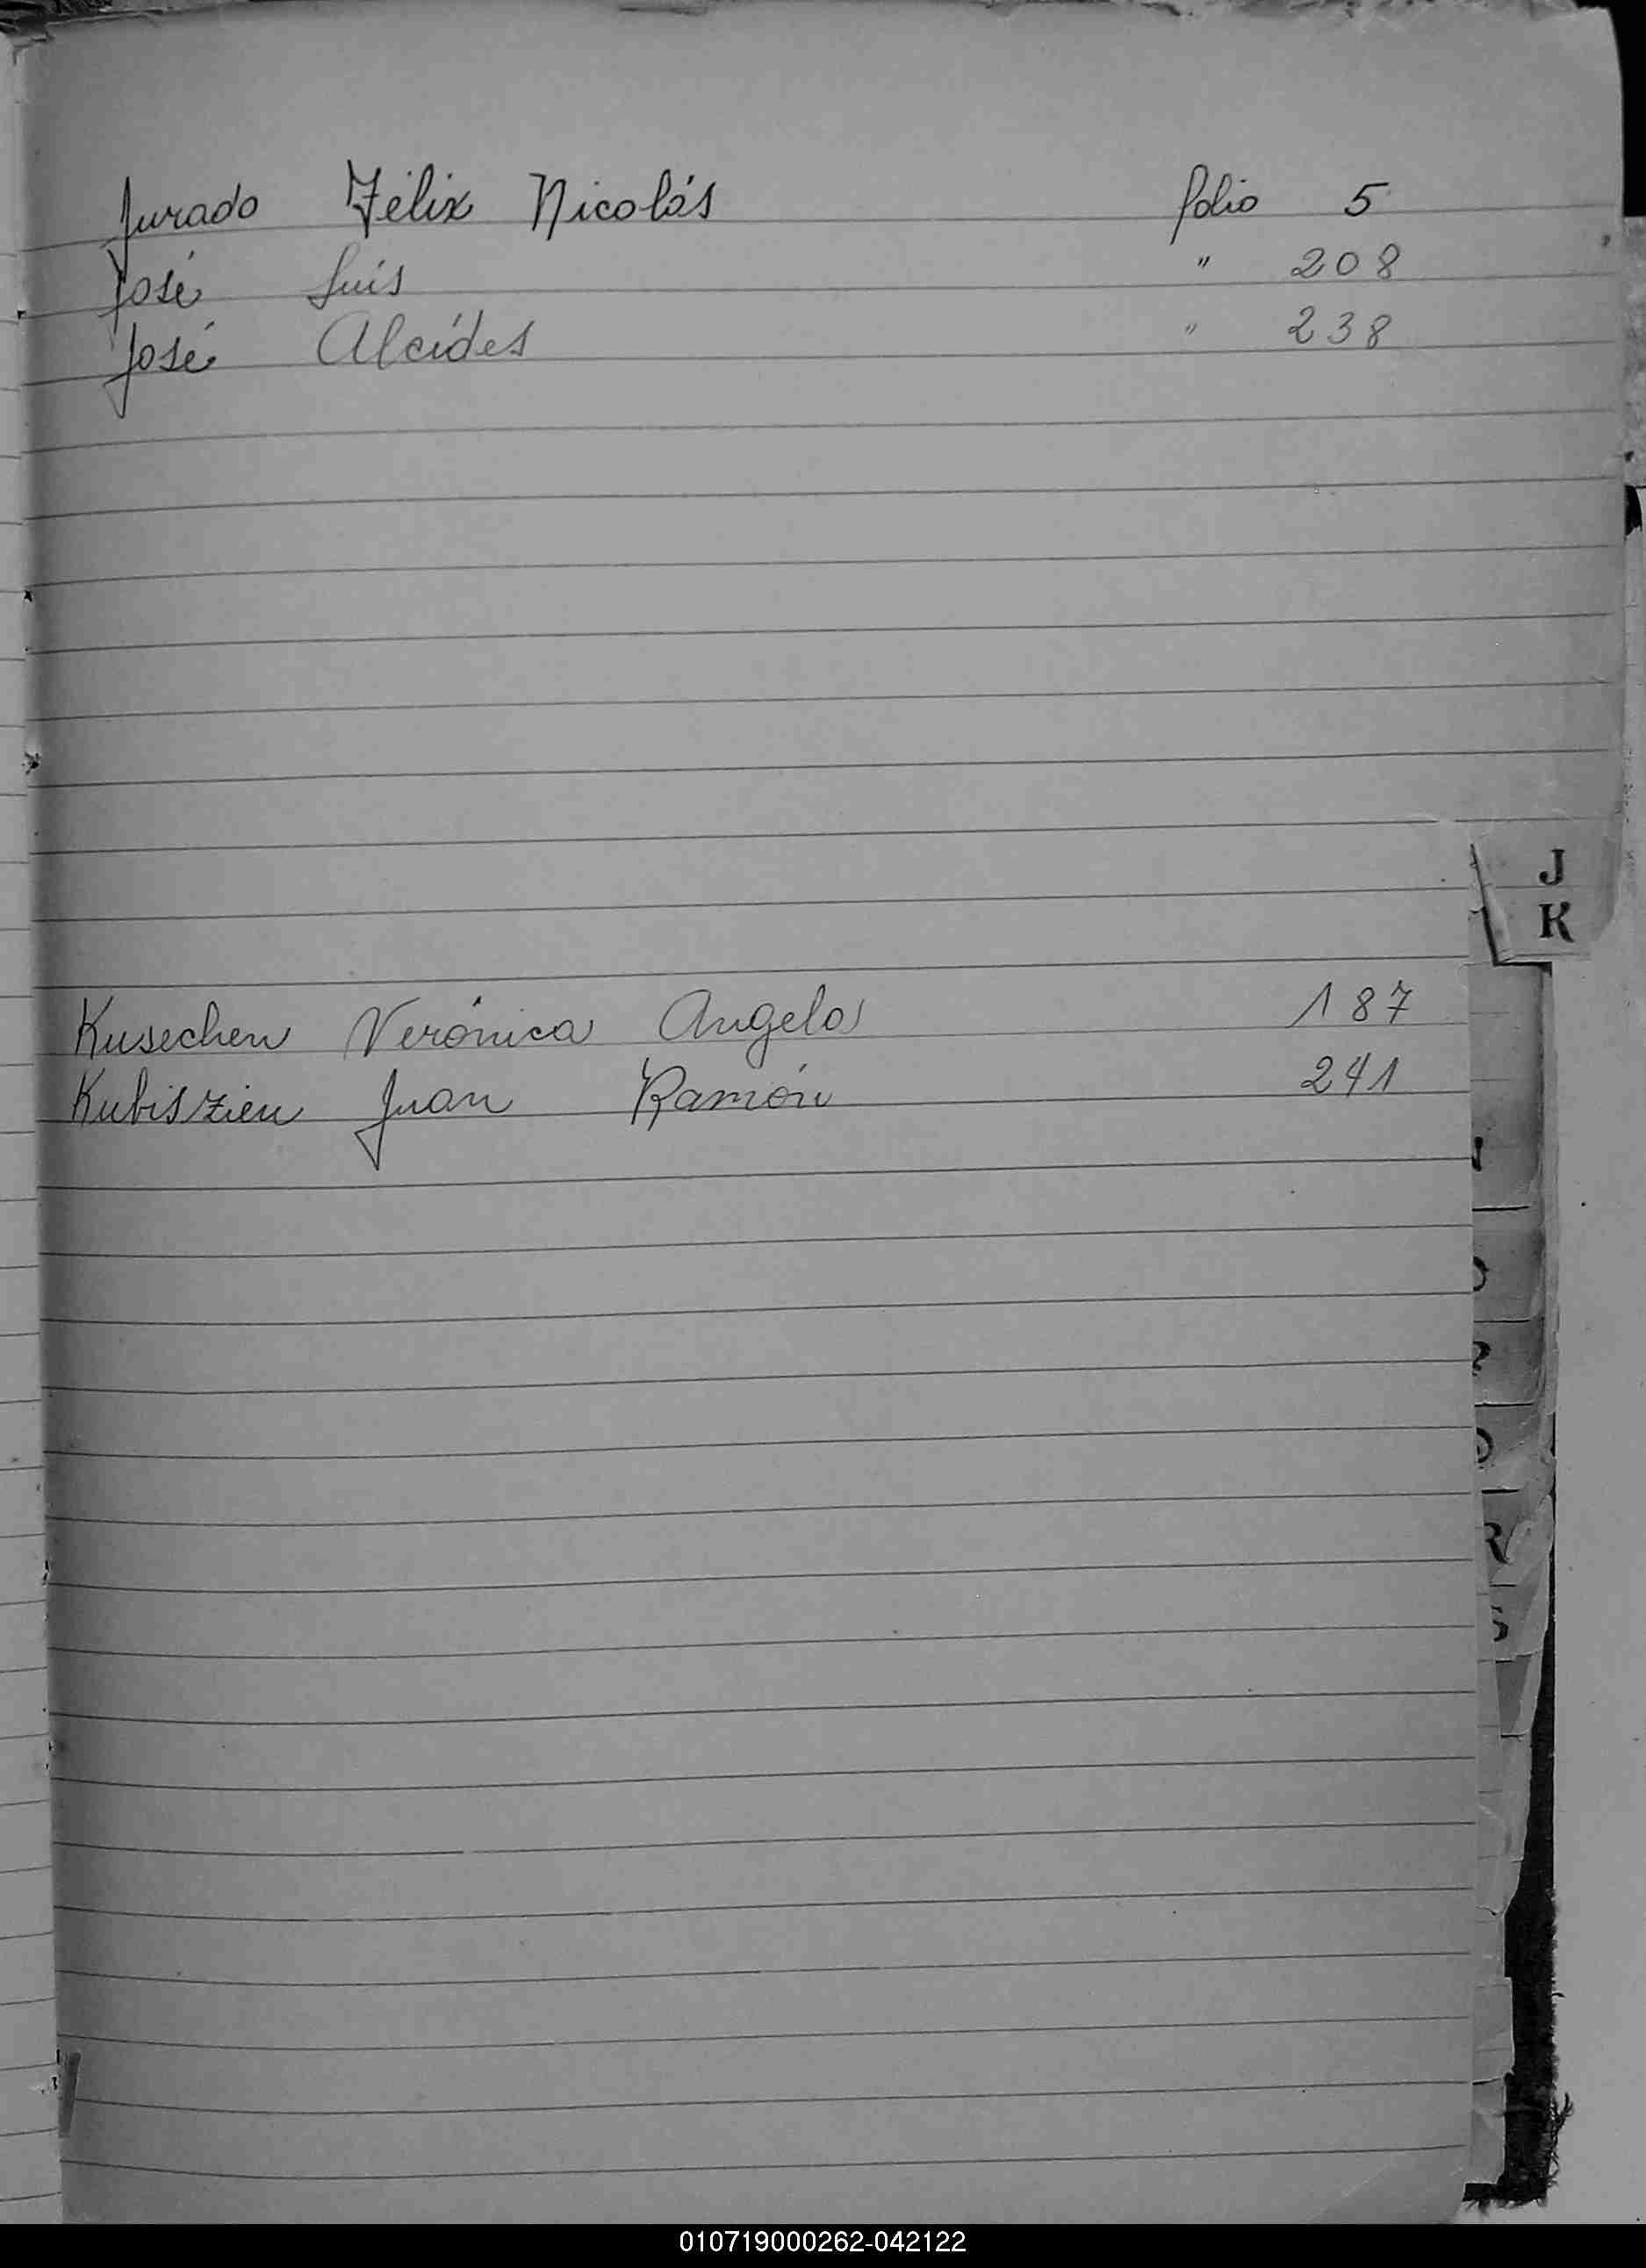 Jurado Félix Nicolás folio 5
José Luis " 208
José Alcídes " 238
J
K
Kusechen Verónica Angela 187
Kubiszien Juan Ramón 241
R
S
010719000262-042122